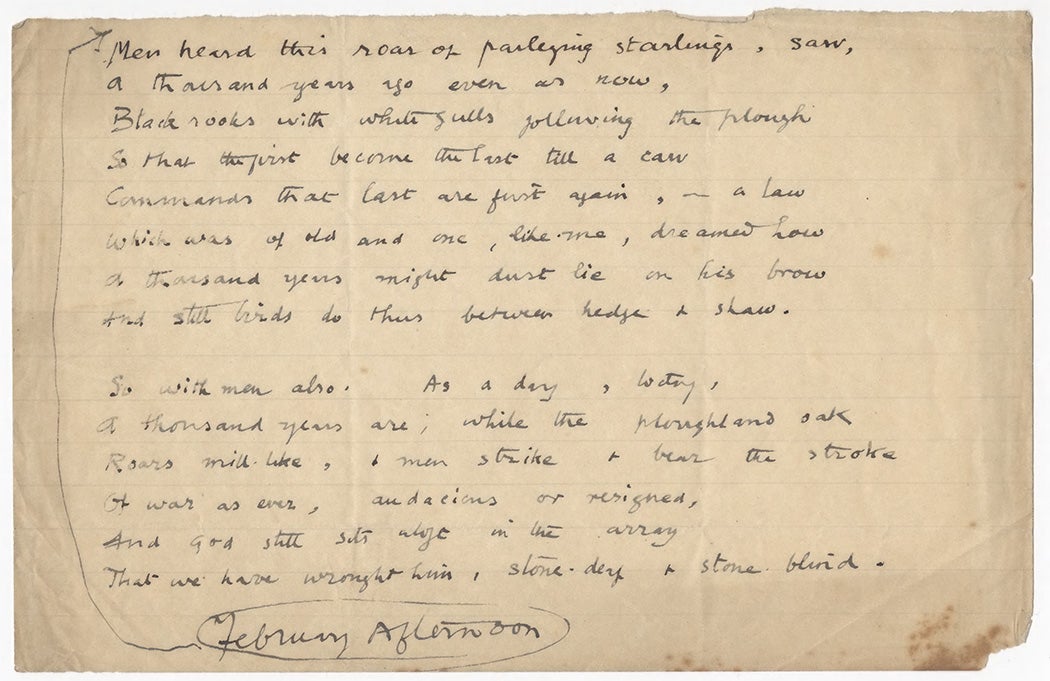 Men heard this roar of parleying starlings, saw,
A thousand years ago even as now,
Black rooks with white gulls following the plough
So that the first become the last till a caw
Commands that last are first again, – a law
Which was of old and one, like me, dreamed how
A thousand years might dust lie on his brow
And still birds do thus between hedge & shaw.
So with men also. As a day, today,
A thousand years are; while the ploughland oak
Roars mill-like, & men strike & bear the stroke
Of war as ever, audacious or resigned,
And God still sits aloft in the array
That we have wrought him, stone-deaf & stone-blind.
February Afternoon